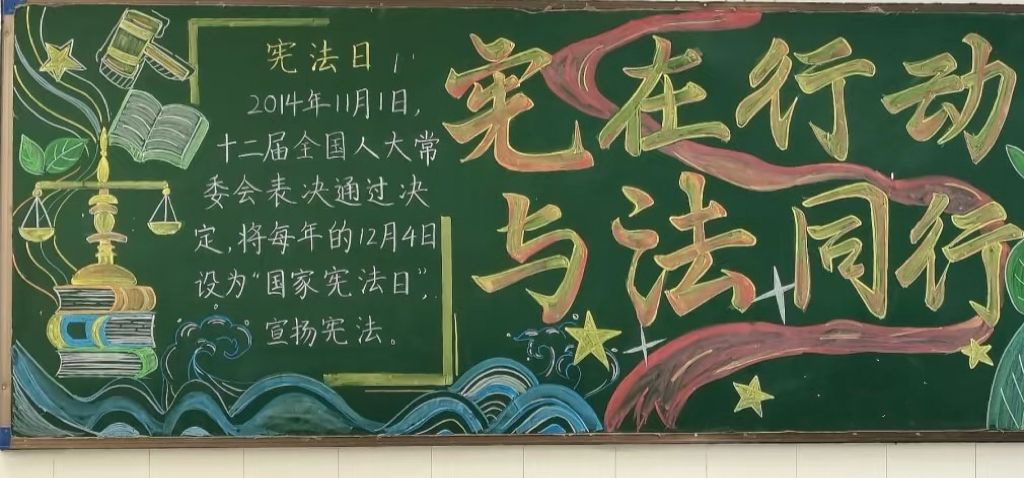 宪法日
2014年11月1日,
十二届全国人大常
委会表决通过决
定,将每年的12月4日
设为“国家宪法日”,
宣扬宪法。
宪在行动
与法同行